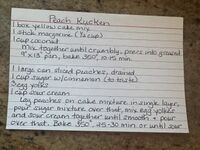 Peach Kucken
1 box yellow cake mix
1 stick margarine (½ cup)
1 cup coconut
Mix together until crumbly, press into ground
9"x13" pan, bake 350° 10-15 min.
1 large can sliced peaches, drained
1 cup sugar w/cinnamon (to taste)
2 egg yolks
1 cup sour cream
Lay peaches on cake mixture in single layer,
pour sugar mixture over that, mix egg yolks
and sour cream together until smooth & pour
over that. Bake 350° 25-30 min. or until sour